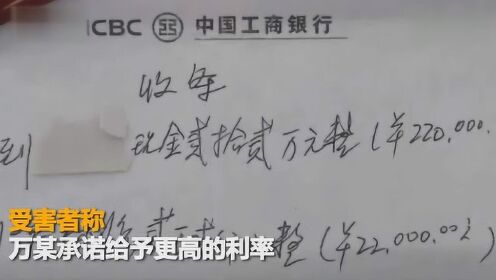 ICBC 中国工商银行
收条
到 现金贰拾贰万元整(¥220,000.
整(¥22,000.00元
受害者称
万某承诺给予更高的利率